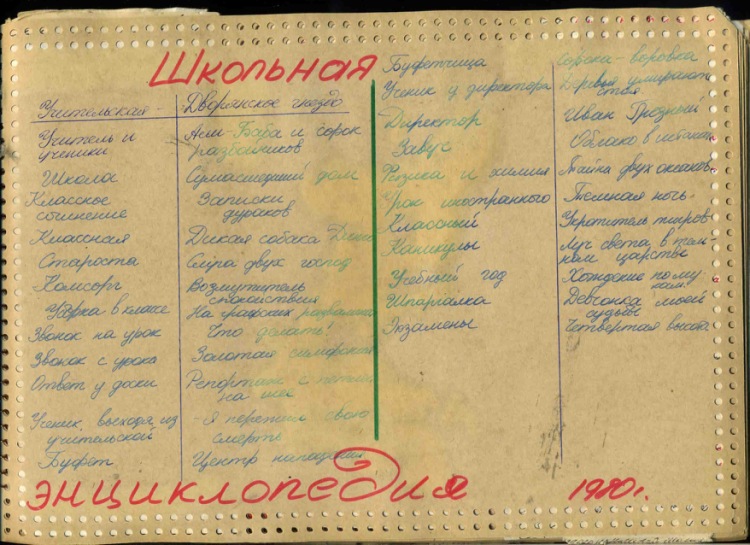 Школьная
Учительская - Дворянское гнездо
Учитель и ученики Али-Баба и сорок разбойников
Школа Сумасшедший дом
Классное сочинение Записки дураков
Классная Дикая собака Динго
Староста Слуга двух господ
Комсорг Возмутитель спокойствия
Уборка в классе На графских развалинах
Звонок на урок Что делать?
Звонок с урока Золотая симфония
Ответ у доски Репортаж с петлей на шее
Ученик, выходя из учительской - Я пережил свою смерть
Буфет Центр нападения
Буфетчица Сорока-воровка
Ученик у директора Деревья умирают стоя
Директор Иван Грозный
Завуч Облако в штанах
Физика и химия Тайна двух океанов
Урок иностранного Темная ночь
Классный Укротитель тигров
Каникулы Луч света в темном царстве
Учебный год Хождение по мукам
Шпаргалка Девчонка моей судьбы
Экзамены Четвертая высота
энциклопедия 1980г.